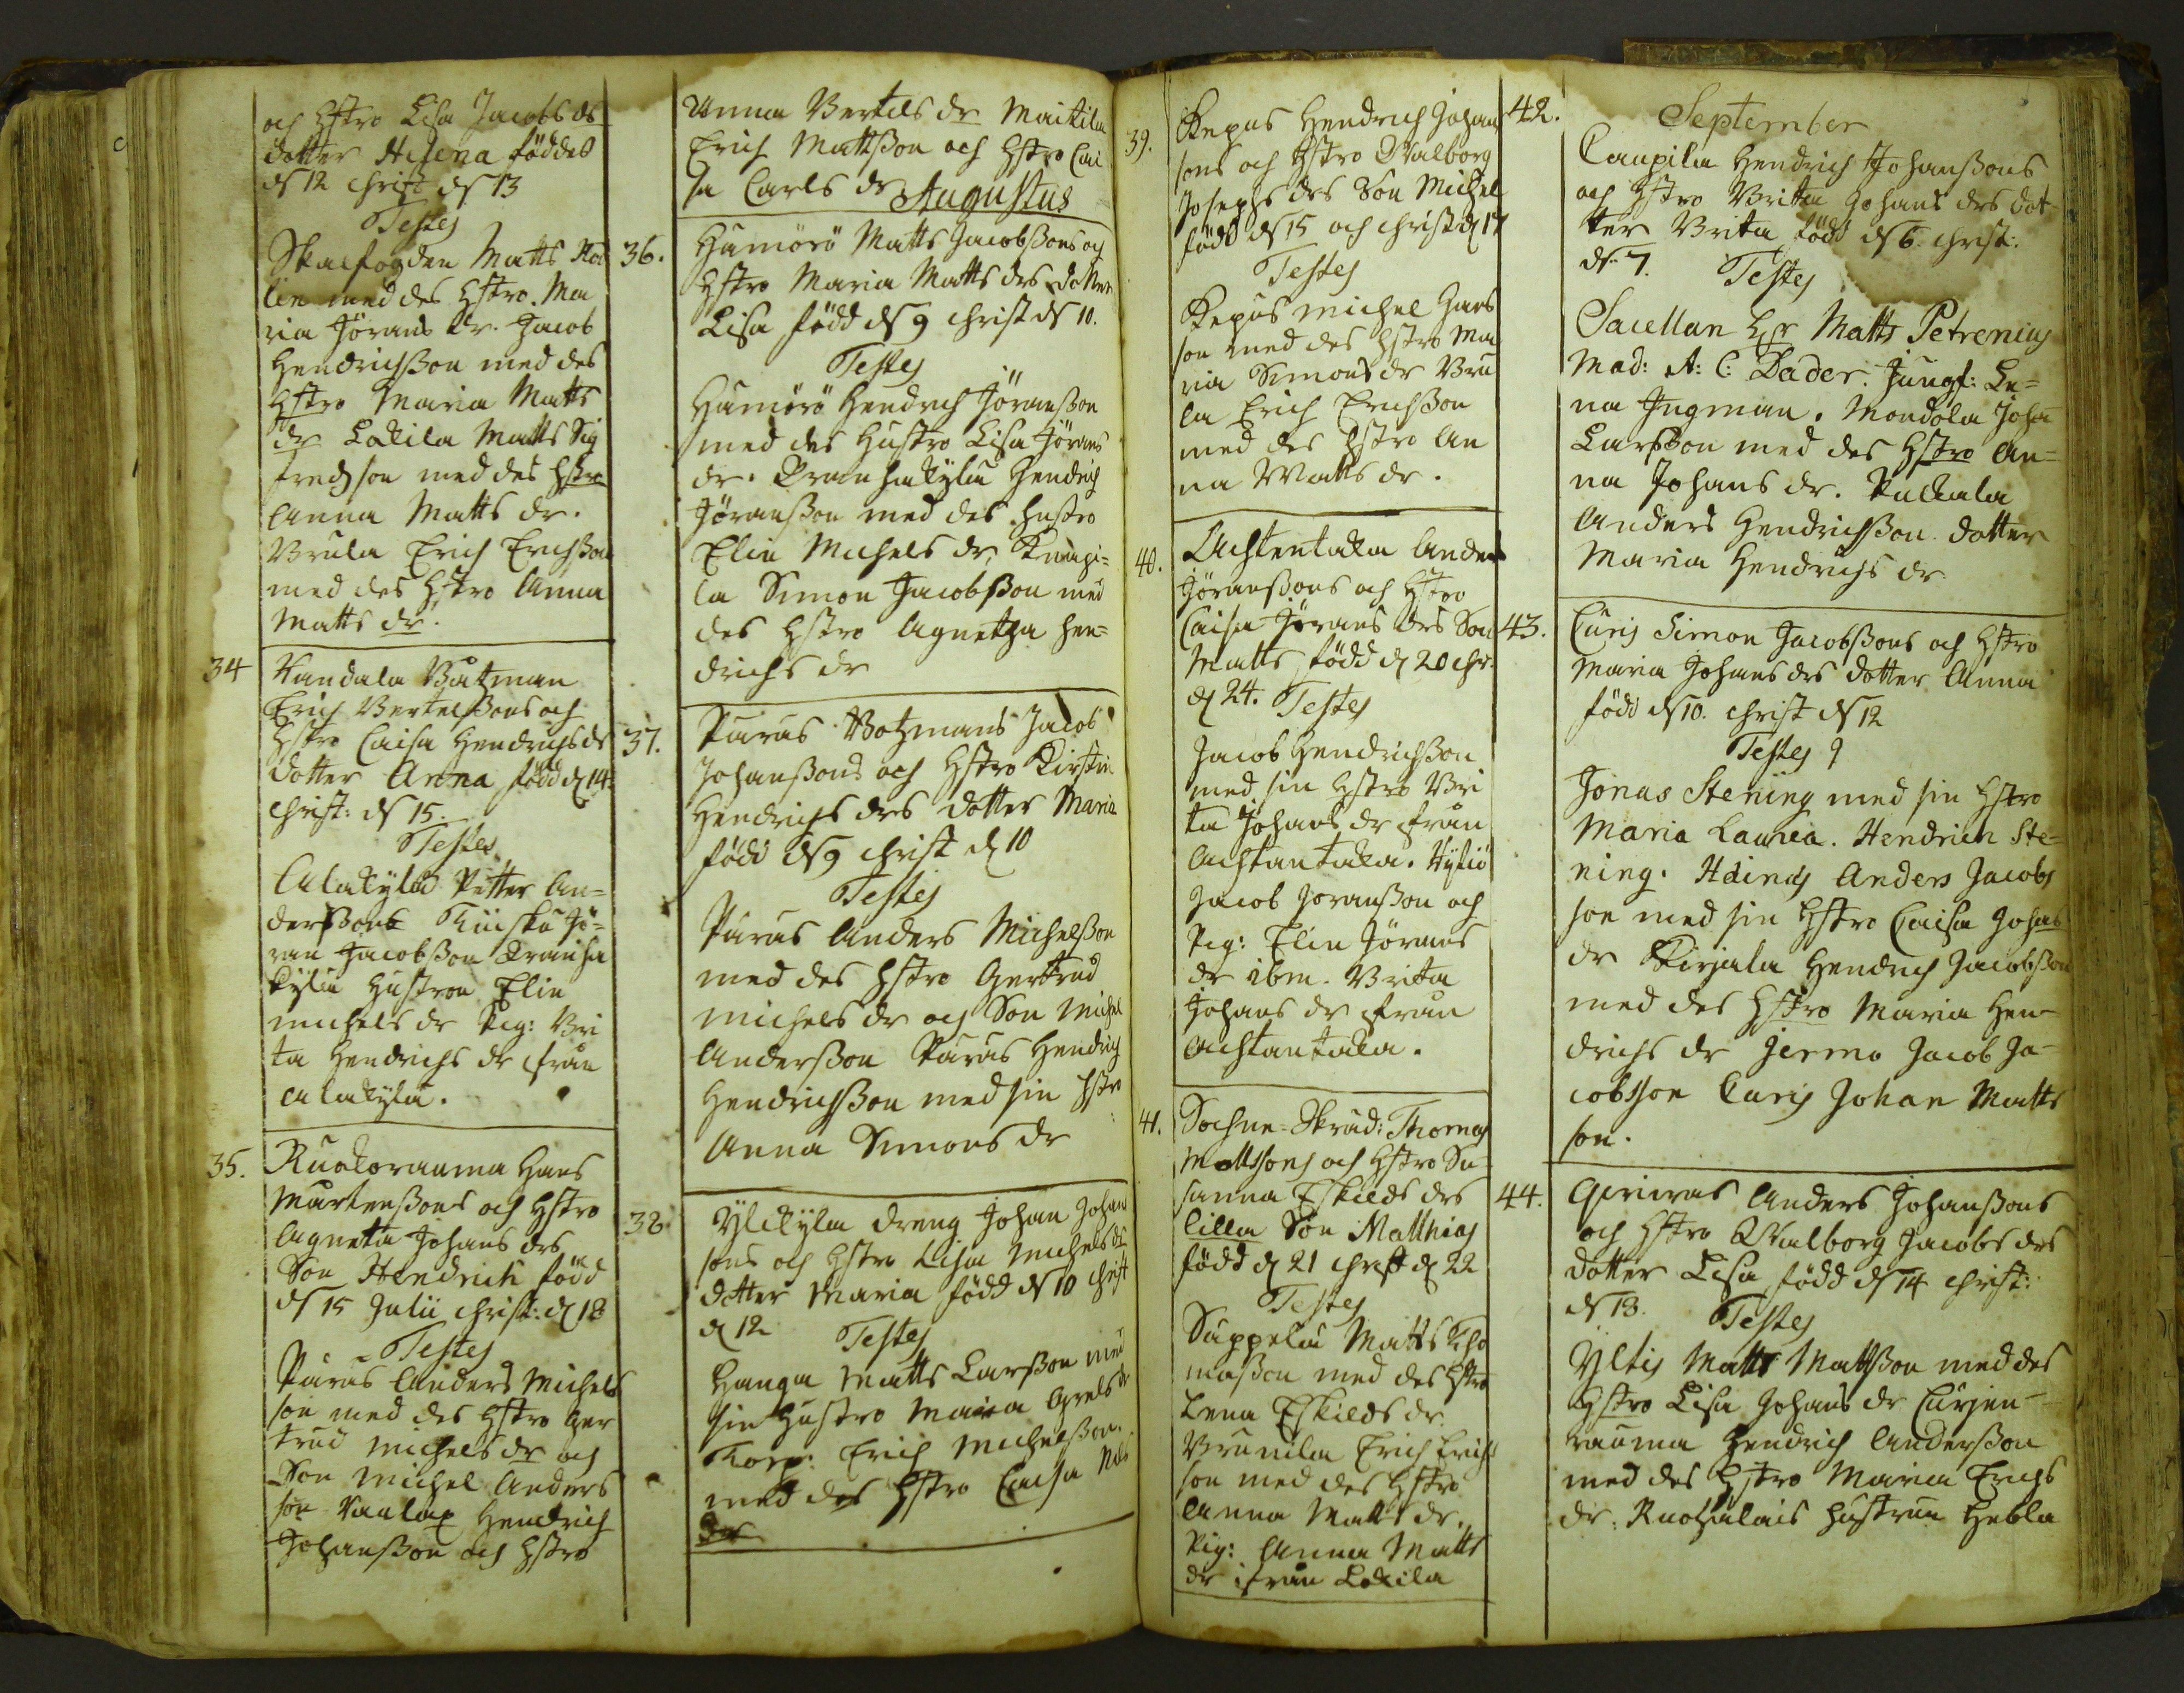 och Hstro Lisa Jacobs ds
dotter Helena föddes
ds 12 christ ds 13
Testes
Skalfogden Matts
lin med des Hstro. Ma
ria Jörans dr. Jacob
Hendrichsson med des
Hstro Maria Matts
dr Lotila Matts Sig
fredsson med des hstro
Anna Matts dr.
Vrula Erich Erichsson
med des Hstro Anna
Matts dr.
34 Båtzman
Erich Bertelssons och
Hstro Caisa Hendrichs ds
dotter Anna född d 14.
christ: ds 15.
Testes
Alakylä Petter An=
derssons Kiiskä Jö=
ran Jacobsson Kranha
kylä Hustron Elin
michels dr Pig: Bri
ta Hendrichs dr från
Alakylä.
35. Ruokorauma Hans
Mårtenssons och Hstro
Agneta Johans drs
Son Hendrich född
ds 15 Julii christ: d 18
Testes
Påras Anders Michels
son med des Hstro Ger
trud Michels dr och
Son Michel Anders
son Hendrich
Johansson och Hstro
Anna Bertils dr Maikila
Erich Mattsson och Hstro Cai
sa Carls dr Augustus
36. Hämörö Matts Jacobssons och
Hstro Maria Matts drs dotter
Lisa född ds 9 christ ds 10.
Testes
Hämörö Hendrich Jöransson
med des Hustro Lisa Jörans
dr. Kranhakylä Hendrich
Jöransson med des Hustro
Elin Michels dr,
la Simon Jacobsson med
des Hstro Agnetha Hen=
drichs dr
37. Påras Botzmans Jacob
Johanssons och Hstro Kirstin
Hendrichs drs dotter Maria
född ds 9 christ d 10
Testes
Påras Anders Michelsson
med des Hstro Gertrud
Michels dr och Son Michel
Andersson Påras Hendrich
Hendrichsson med sin Hstro
Anna Simons dr
38. Ylikylä dräng Johan Johans
sons och Hstro Lisa Michels ds
dotter Maria född ds 10 christ
d 12 Testes
Hanga Matts Larsson med
sin Hustro Maria Grels dr
Korp: Erich Michelsson.
med des Hstro Caisa Nils
dr
39. Repas Hendrich Johans
sons och Hstro Walborg
Josephs drs Son Michel
född ds 15 och christ d 17
Testes
Repas Michel Hans
son med des Hstro Ma
ria Simons dr Vru
la Erich Erichsson
med des Hstro An
na Matts dr.
40. Achtentaka Anders
Jöranssons och Hstro
Caisa Jörans drs Son
Matts född d 20 chr.
d 24. Testes
Jacob Hendrichsson
med sin Hstro Bri
ta Johans dr från
Achtantaka.
Jacob Göransson och
Pig: Elin Jörans
dr ibm. Brita
Johans dr från
Achtantaka.
41. Sochne-Skräd: Thomas
Mattssons och Hstro Su
sanna Eskilds drs
lilla Son Matthias
född d 21 christ d 22
Testes
Suppela Matts Tho
masson med des Hstro
Lena Eskilds dr.
Erich Erich
son med des Hstro
Anna Matts dr.
Pig: Anna Matts
dr ifrån Lokila
42. September
Caupila Hendrich Johanssons
och Hstro Britta Johans drs dot
ter Brita född ds 6. christ:
ds. 7. Testes
Sacellan Hr Matts Petrenius
Mad: A: C: Bader. Jungf: Le=
na Ingman. Mondola Joha
Larsson med des Hstro An=
na Johans dr. Puckala
Anders Hendrichsson. dotter
Maria Hendrichs dr
43. Curis Simon Jacobssons och Hstro
Maria Johans drs dotter Anna
född ds 10. christ ds 12
Testes
Jonas Stening med sin Hstro
Maria Laurea. Hendrich Ste=
ning. Anders Jacobs
son med sin Hstro Caisa Johans
dr Kirjala Hendrich Jacobsson
med des Hstro Maria Hen-
drichs dr Jermo Jacob Ja-
cobsson Curis Johan Matts
son.
44. Anders Johanssons
och Hstro Walborg Jacobs drs
dotter Lisa född ds 14 christ:
ds 18. Testes
Yltis Matts Mattsson med des
Hstro Lisa Johans dr Curjen-
rauma Hendrich Andersson
med des Hstro Maria Erichs
dr. Hustrun Hebla